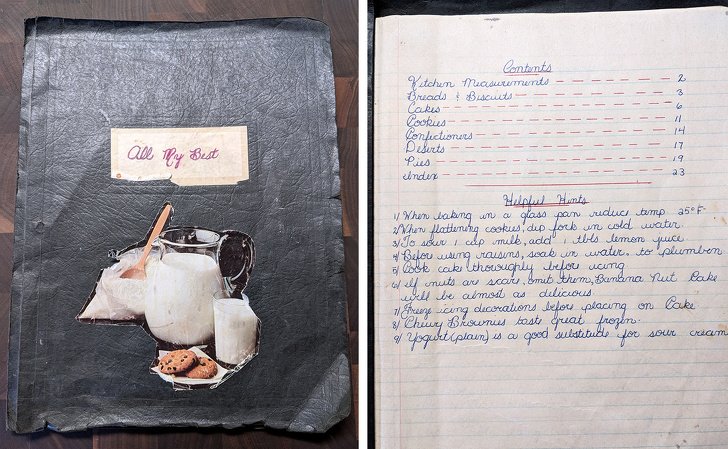 All My Best
Contents
Kitchen Measurements 2
Breads & Biscuits 3
Cakes 6
Cookies 11
Confectioners 14
Deserts 17
Pies 19
Index 23
Helpful Hints
1/ When baking in a glass pan reduce temp 25°F.
2/ When flattening cookies, dip fork in cold water.
3/ To sour 1 cup milk, add 1 tbls lemon juice
4/ Before using raisins, soak in water, to plumben
5/ Cook cake thoroughly before icing
6/ If nuts are scars, omit them, Banana Nut Cake
will be almost as delicious.
7/ Freeze icing decorations before placing on Cake
8/ Chewy Brownies taste great frozen.
9/ Yogurt (plain) is a good substitude for sour cream